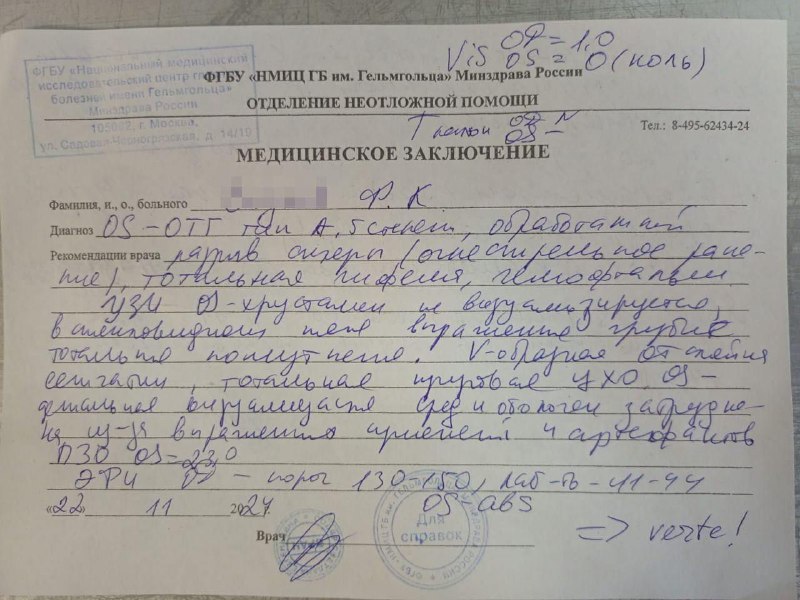 Vis OD = 1,0
OS = 0 (ноль)
ФГБУ «Национальный медицинский
исследовательский центр глазных
болезней имени Гельмгольца»
Минздрава России
105062, г. Москва,
ул. Садовая-Черногрязская, д. 14/19
ФГБУ «НМИЦ ГБ им. Гельмгольца» Минздрава России
ОТДЕЛЕНИЕ НЕОТЛОЖНОЙ ПОМОЩИ
Т OD N
OS –
Тел.: 8-495-62434-24
МЕДИЦИНСКОЕ ЗАКЛЮЧЕНИЕ
Фамилия, и., о., больного Ф. К
Диагноз OS – ОТГ тип А, 5 степени, обработанный
Рекомендации врача разрыв склеры (огнестрельное ране-
ние), тотальная гифема, гемофтальм.
УЗИ OS – хрусталик не визуализируется,
в стекловидном теле выраженные грубые
тотальные помутнения. V-образная отслойка
сетчатки, тотальная ЦХО. OS –
детальная визуализация сред и оболочек затрудне-
на из-за и артефактов
ПЗО OS = 23,0
ЭФИ OD – порог 130-150, лаб-ть – 41-44
OS – abs
«22» 11 2024
Врач
Для
справок
=> verte!